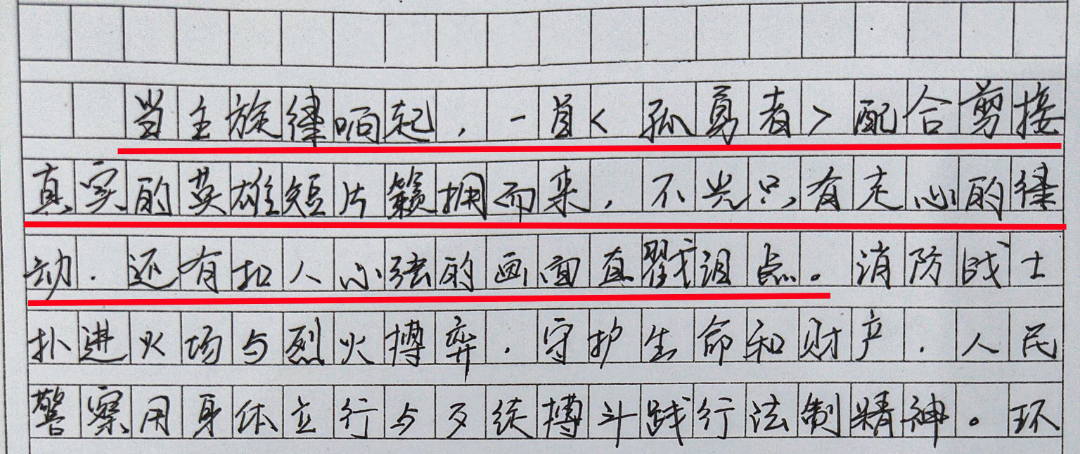 当主旋律响起，一首<孤勇者>配合剪接
真实的英雄短片簇拥而来，不光只有走心的律
动，还有扣人心弦的画面直戳泪点。消防战士
扑进火场与烈火搏弈，守护生命和财产，人民
警察用身体立行与歹徒搏斗践行法制精神。环